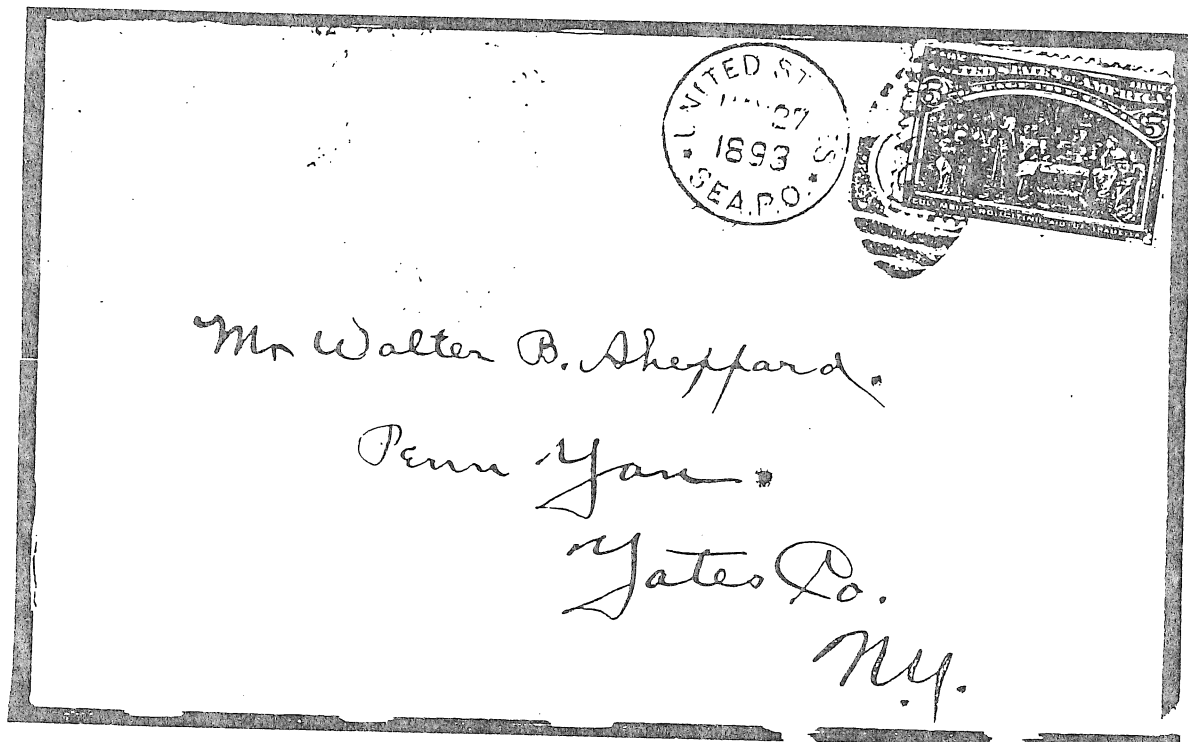 UNITED ST ES
27
1893
SEA.P.O.
UNITED STATES OF AMERICA
5 5
Mr Walter B. Sheppard.
Penn Yan.
Yates Co.
N.Y.